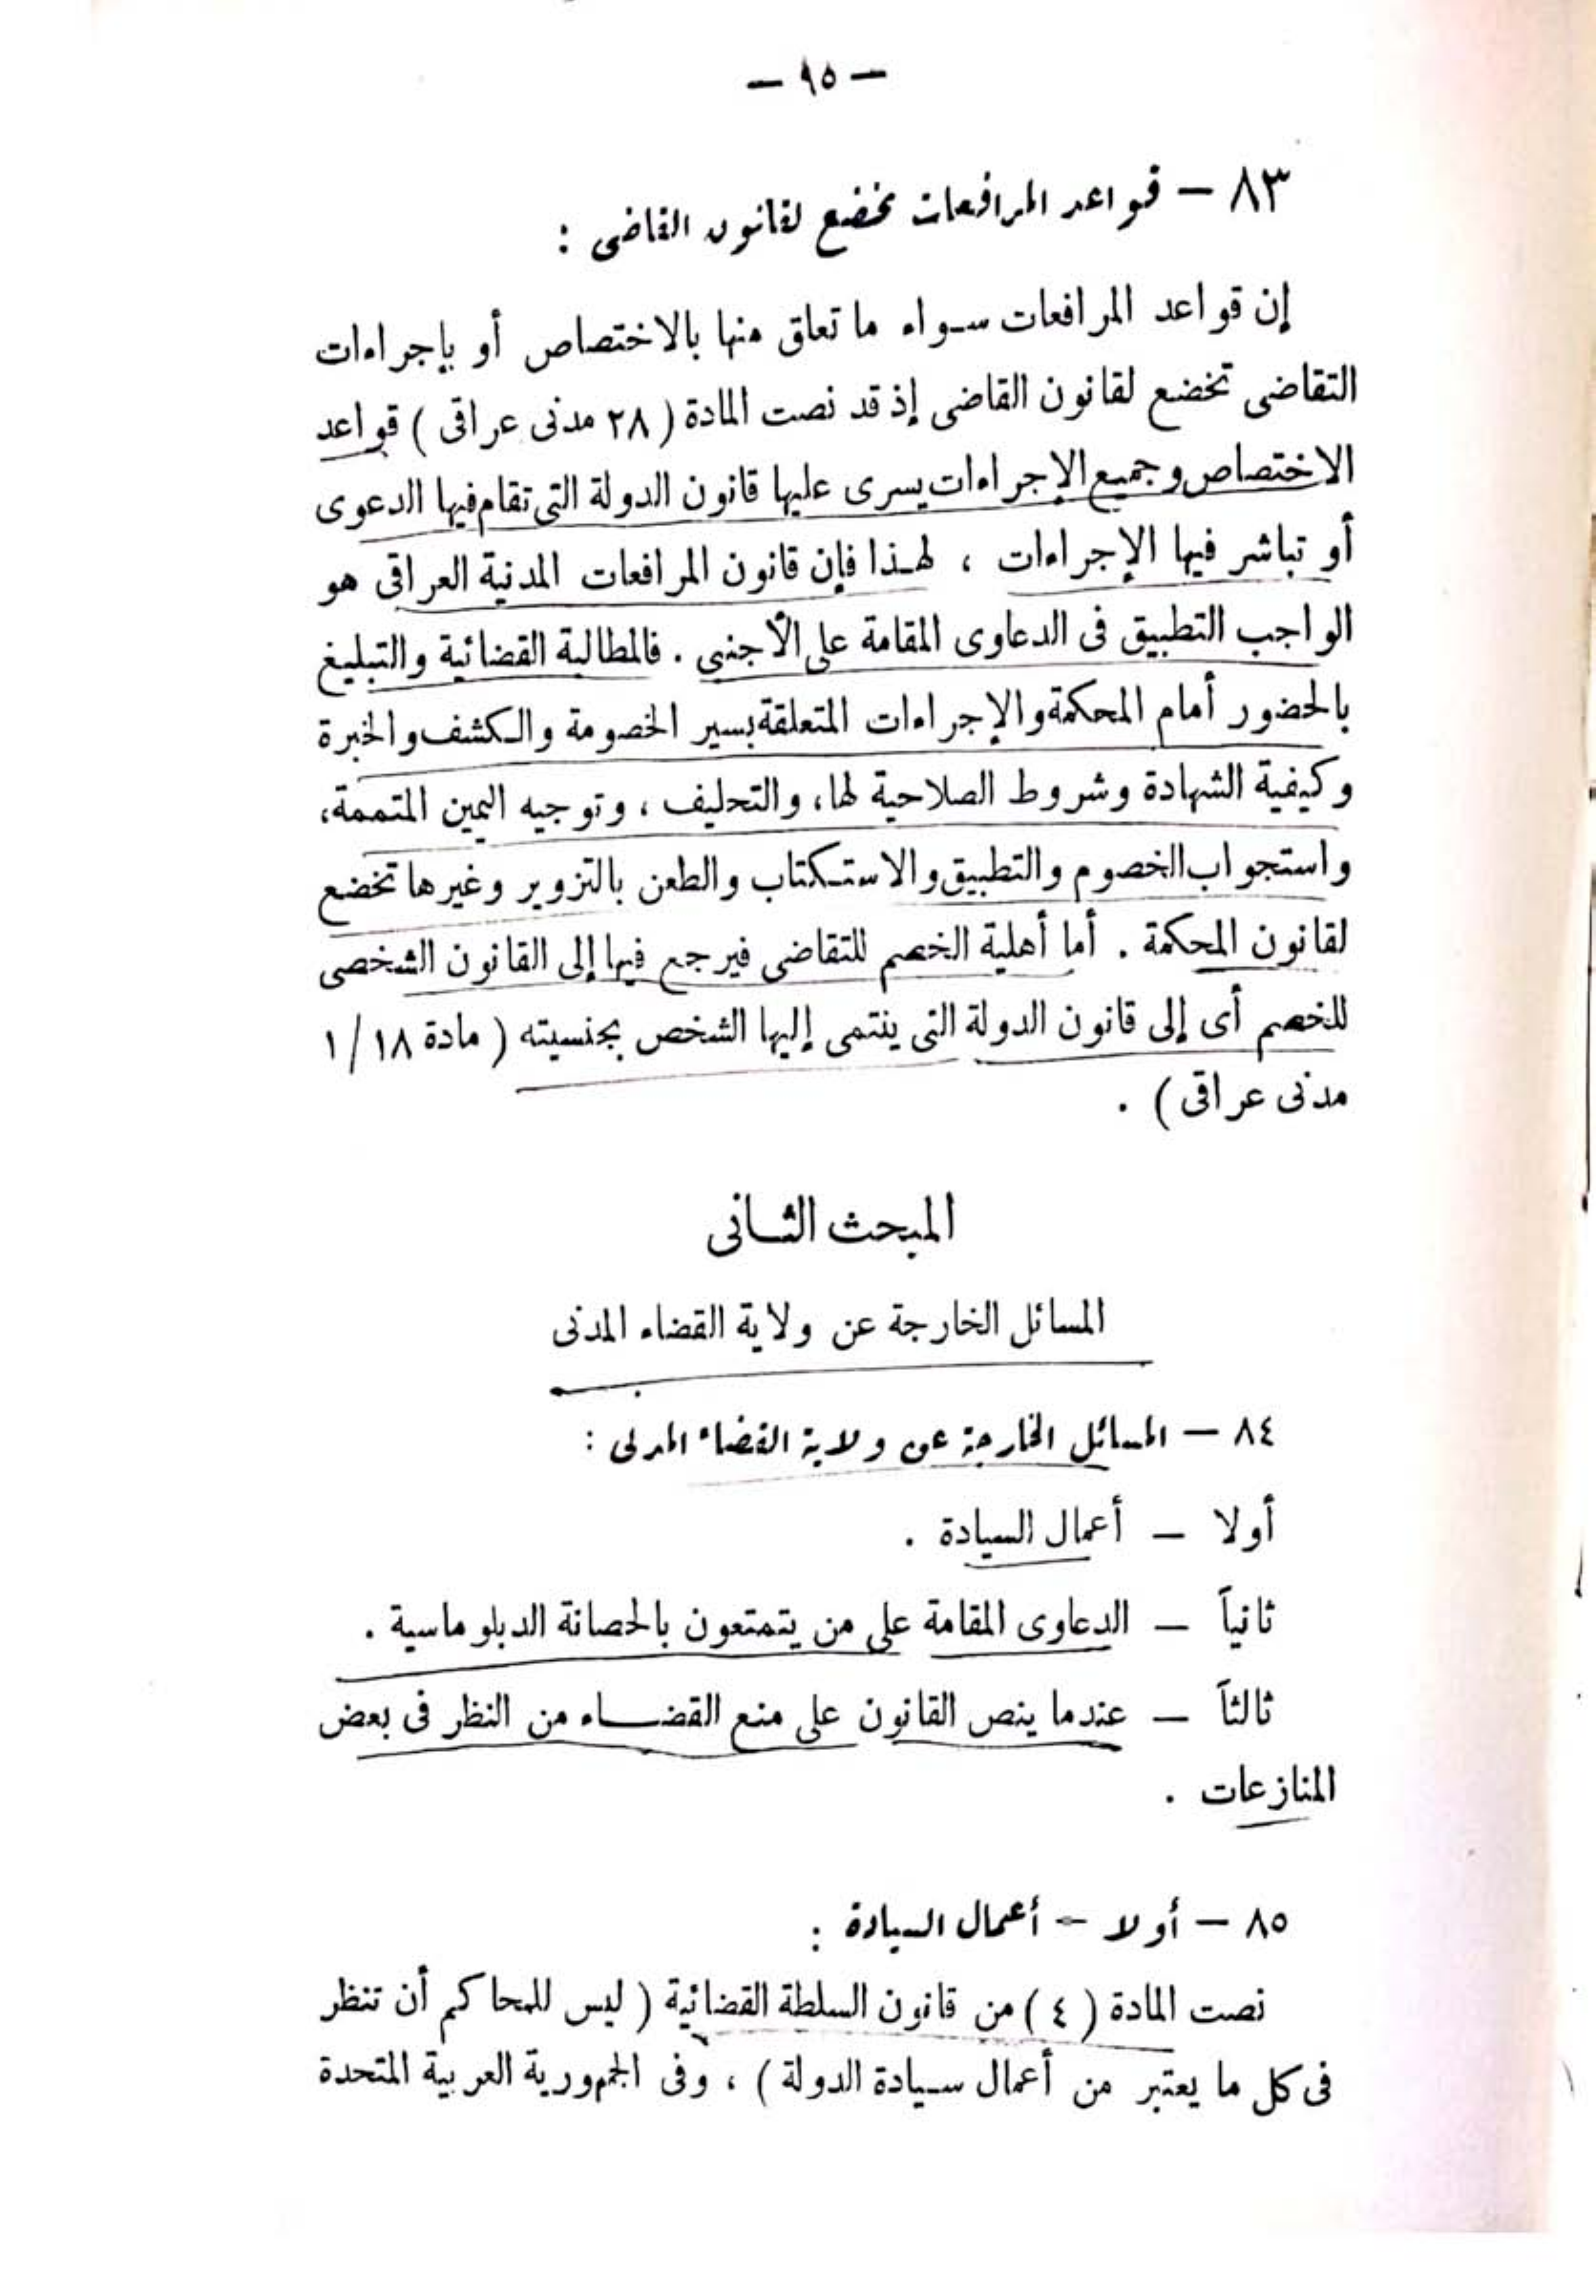 — ٩٥ —
٨٣ — قواعد المرافعات تخضع لقانون القاضى :
إن قواعد المرافعات سواء ما تعلق منها بالاختصاص أو بإجراءات
التقاضى تخضع لقانون القاضى إذ قد نصت المادة ( ٢٨ مدنى عراقى ) قواعد
الاختصاص وجميع الإجراءات يسرى عليها قانون الدولة التى تقام فيها الدعوى
أو تباشر فيها الإجراءات ، لهذا فإن قانون المرافعات المدنية العراقى هو
الواجب التطبيق فى الدعاوى المقامة على الأجنبى . فالمطالبة القضائية والتبليغ
بالحضور أمام المحكمة والإجراءات المتعلقة بسير الخصومة والكشف والخبرة
وكيفية الشهادة وشروط الصلاحية لها ، والتحليف ، وتوجيه اليمين المتممة ،
واستجواب الخصوم والتطبيق والاستكتاب والطعن بالتزوير وغيرها تخضع
لقانون المحكمة . أما أهلية الخصم للتقاضى فيرجع فيها إلى القانون الشخصى
للخصم أى إلى قانون الدولة التى ينتمى إليها الشخص بجنسيته ( مادة ١٨ / ١
مدنى عراقى ) .
المبحث الثانى
المسائل الخارجة عن ولاية القضاء المدنى
٨٤ — المسائل الخارجة عن ولاية القضاء المدنى :
أولا — أعمال السيادة .
ثانياً — الدعاوى المقامة على من يتمتعون بالحصانة الدبلوماسية .
ثالثاً — عندما ينص القانون على منع القضاء من النظر فى بعض
المنازعات .
٨٥ — أولا — أعمال السيادة :
نصت المادة ( ٤ ) من قانون السلطة القضائية ( ليس للمحاكم أن تنظر
فى كل ما يعتبر من أعمال سيادة الدولة ) ، وفى الجمهورية العربية المتحدة